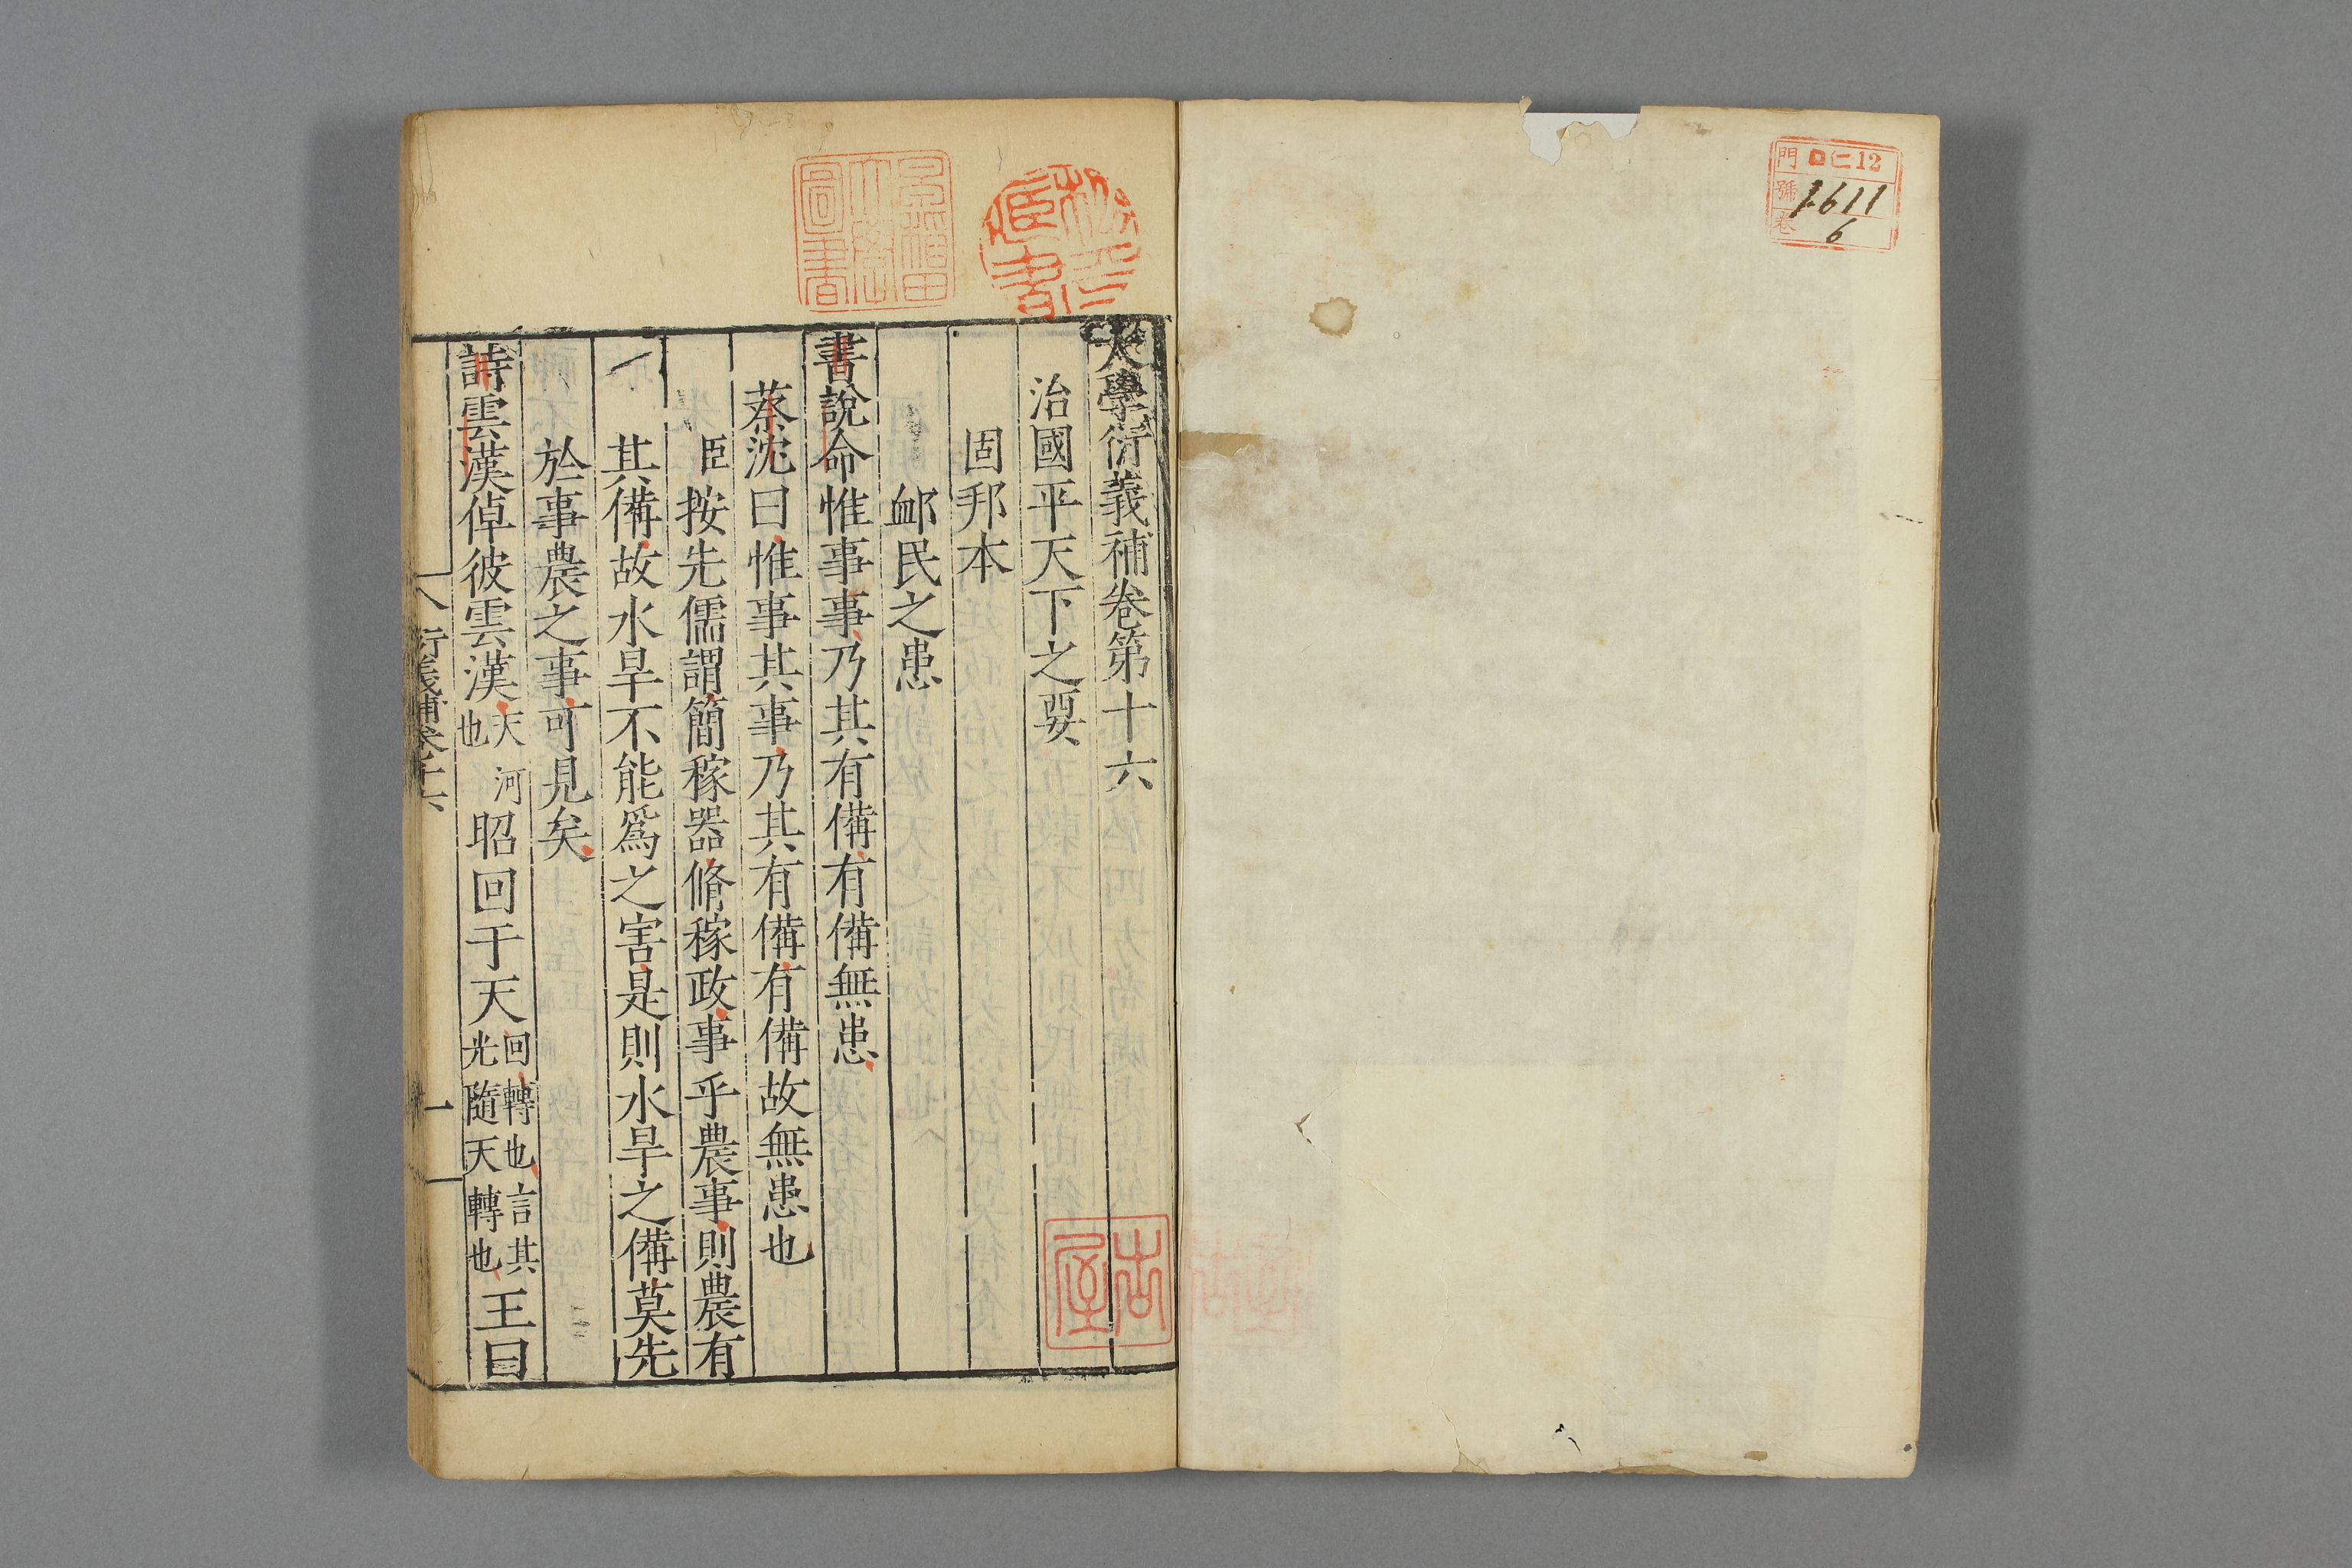 門 ロ仁12
號 1611
卷 6
大學衍義補卷第十六
治國平天下之要
固邦本
䘏民之患
書說命惟事事乃其有備有備無患
蔡沈曰惟事其事乃其有備有備故無患也
臣按先儒謂簡稼器脩稼政事乎農事則農有
其備故水旱不能爲之害是則水旱之備莫先
於事農之事可見矣
詩雲漢倬彼雲漢天河也昭回于天回轉也言其光隨天轉也王曰
衍義補卷十六
一
早稻田大學圖書